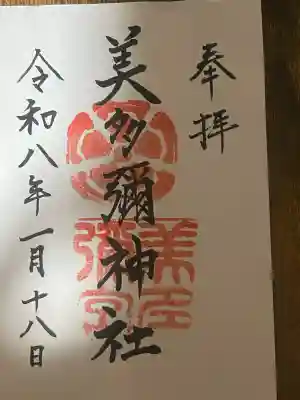 奉拝
美多彌神社
令和八年一月十八日